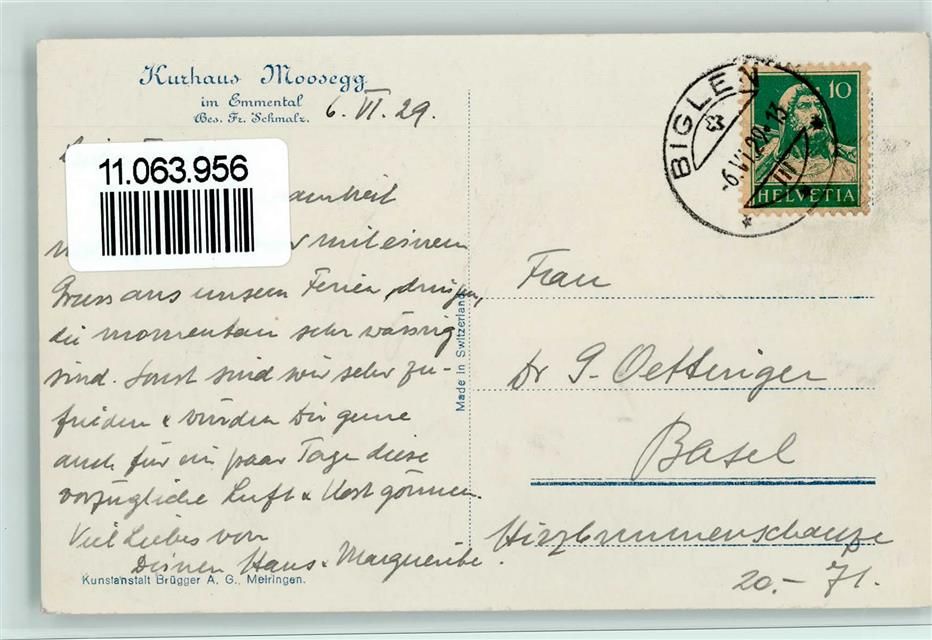 Kurhaus Moosegg
im Emmental
Bes. Fr. Schmalz.
6. VI. 29.
11.063.956
mit einem
Gruss aus unsern Ferien
die momentan sehr wässrig
sind. Sonst sind wir sehr zu-
frieden & würden Dir gerne
auch für ein paar Tage diese
vorzügliche Luft & Kost gönnen.
Viel Liebes von
Deinen Hans & Marguerite.
Kunstanstalt Brügger A. G., Meiringen.
Made in Switzerland
BIGLEN
-6.VI.29.13
10
HELVETIA
Frau
Dr G. Oettinger
Basel
Hirzbrunnenschanze
20.- 71.